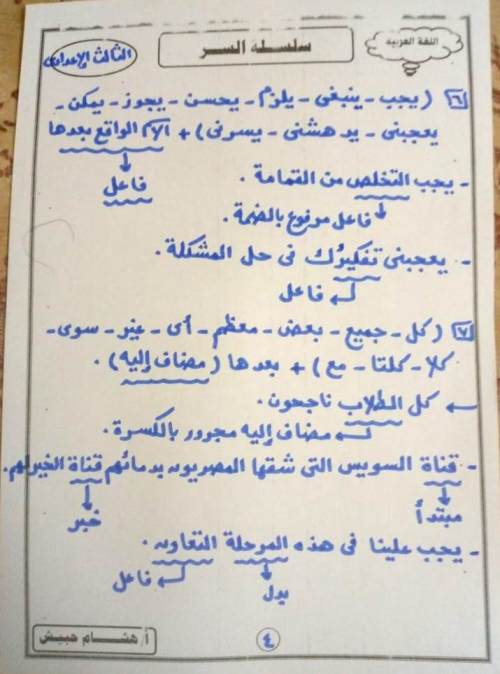 اللغة العربية
سلسله السر
الثالث الإعدادى
٦ (يجب - ينبغى - يلزم - يحسن - يجوز - يمكن -
يعجبنى - يدهشنى - يسرنى) + الاسم الواقع بعدها
فاعل
- يجب التخلص من القمامة .
فاعل مرفوع بالضمة .
- يعجبنى تفكيرُك فى حل المشكلة .
فاعل
٧ (كل - جميع - بعض - معظم - أى - غير - سوى -
كلا - كلتا - مع) + بعدها (مضاف إليه) .
كل الطلاب ناجحون .
مضاف إليه مجرور بالكسرة .
- قناة السويس التى شقها المصريون بدمائهم قناة الخير لهم .
مبتدأ
خبر
- يجب علينا فى هذه المرحلة التعاون .
بدل
فاعل
٤
أ/ هشام حبيش